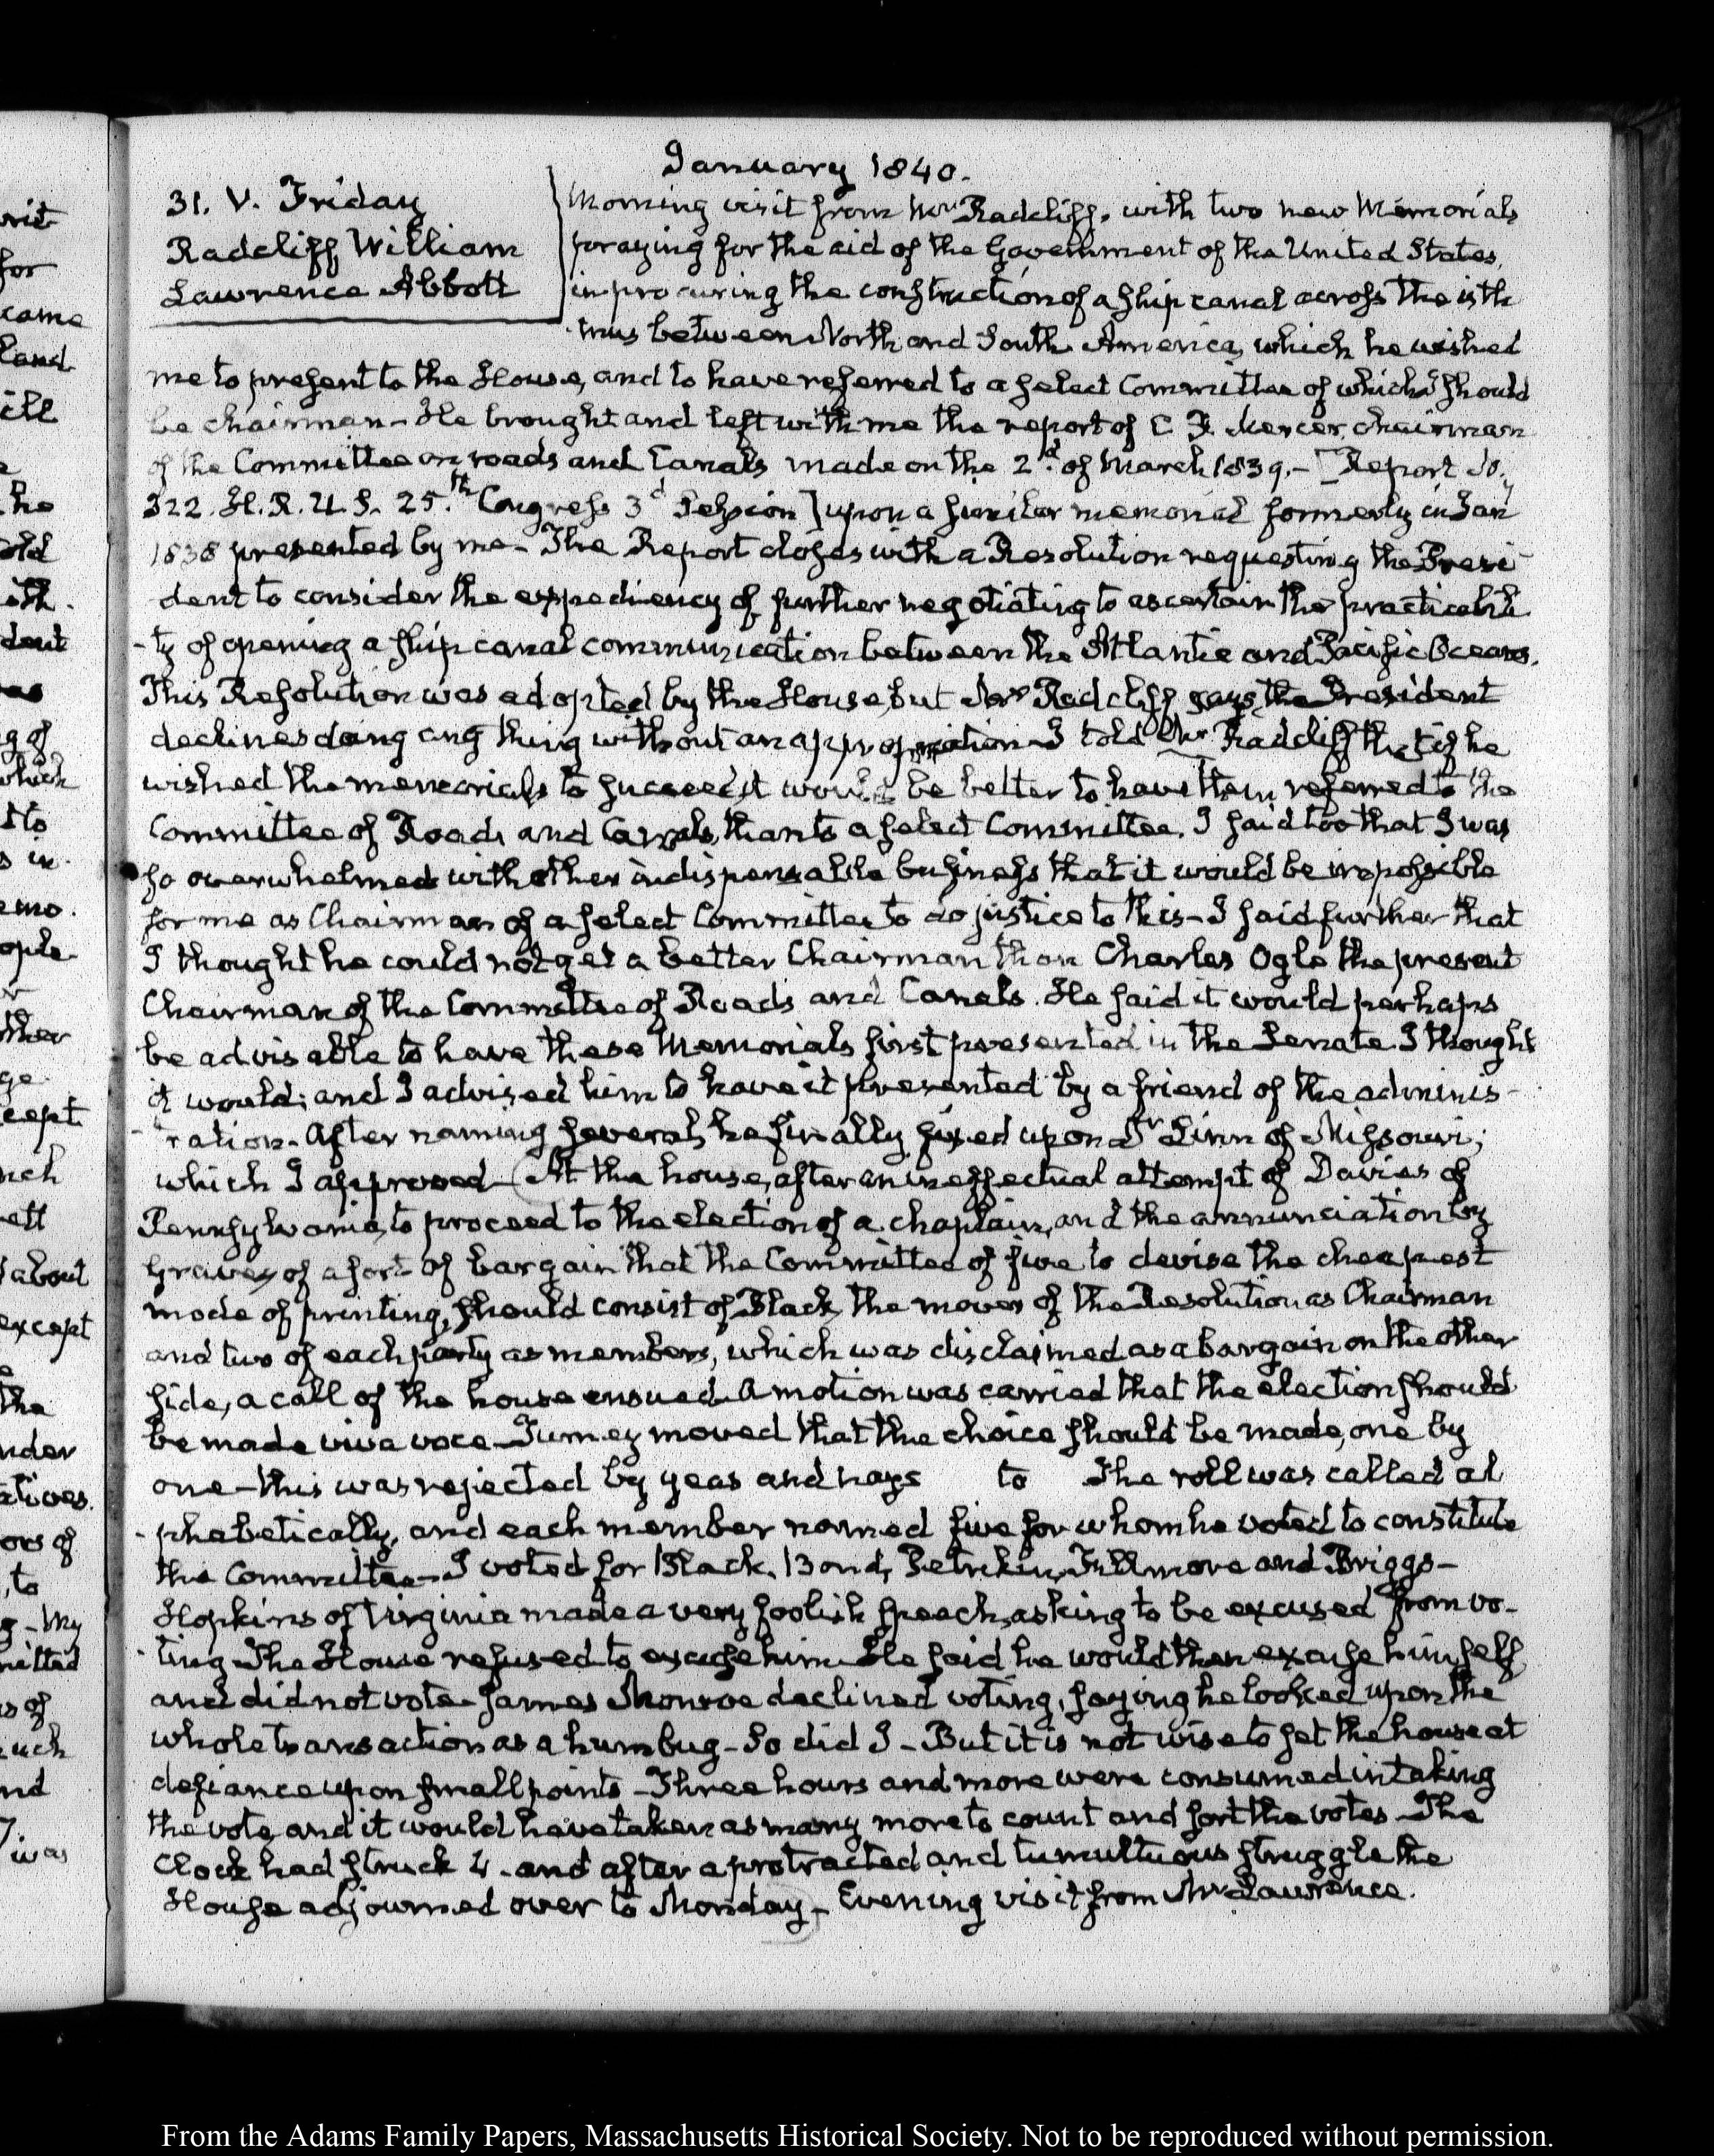 January 1840.
31. V. Friday
Radcliff, William
Lawrence Abbott
Morning visit from Mr Radcliff, with two new Memorials
praying for the aid of the Government of the United States,
in procuring the construction of a ship canal across the isth
-mus between North and South America, which he wished
me to present to the House, and to have referred to a select Committee of which I should
be Chairman- He brought and left with me the report of C. F. Mercer, chairman
of the Committee on roads and Canals made on the 2d. of March 1839.- [Report No.
322. H.R. U.S. 25.th Congress 3d Session] upon a similar memorial formerly in Jan
1838 presented by me- The Report closes with a Resolution requesting the Presi-
dent to consider the expediency of further negotiating to ascertain the practicabili
-ty of opening a ship canal communication between the Atlantic and Pacific Oceans.
This Resolution was adopted by the House, but Mr Radcliff says, the President
declines doing any thing without an appropriation- I told Mr Radcliff that if he
wished the memorials to succeed, it would be better to have them referred to the
Committee of Roads and Canals, than to a select Committee. I said too that I was
so overwhelmed with other indispensable business that it would be impossible
for me as Chairman of a select Committee to do justice to this- I said further that
I thought he could not get a better Chairman than Charles Ogle the present
Chairman of the Committee of Roads and Canals. He said it would perhaps
be advisable to have these Memorials first presented in the Senate. I thought
it would; and I advised him to have it presented by a friend of the adminis-
-tration. After naming several, he finally fixed upon Dr Linn of Missouri;
which I approved- At the house, after an ineffectual attempt of Davies of
Pennsylvania, to proceed to the election of a chaplain, and the annunciation by
Graves of a sort of bargain that the Committee of five to devise the cheapest
mode of printing, should consist of Black, the mover of the Resolution as Chairman
and two of each party as members, which was disclaimed as a bargain on the other
side, a call of the house ensued. A motion was carried that the election should
be made viva voce- Turney moved that the choice should be made, one by
one- this was rejected by yeas and nays to The roll was called al
-phabetically, and each member named five for whom he voted to constitute
the Committee- I voted for Black, Bond, Petrikin, Fillmore and Briggs-
Hopkins of Virginia made a very foolish speech, asking to be excused from vo-
-ting- The House refused to excuse him- He said he would then excuse himself
and did not vote- James Monroe declined voting, saying he looked upon the
whole transaction as a humbug- So did I- But it is not wise to set the house at
defiance upon small points- Three hours and more were consumed in taking
the vote, and it would have taken as many more to count and sort the votes- The
Clock had struck 4. and after a protracted and tumultuous struggle the
House adjourned over to Monday- Evening visit from Mr Lawrence.
From the Adams Family Papers, Massachusetts Historical Society. Not to be reproduced without permission.